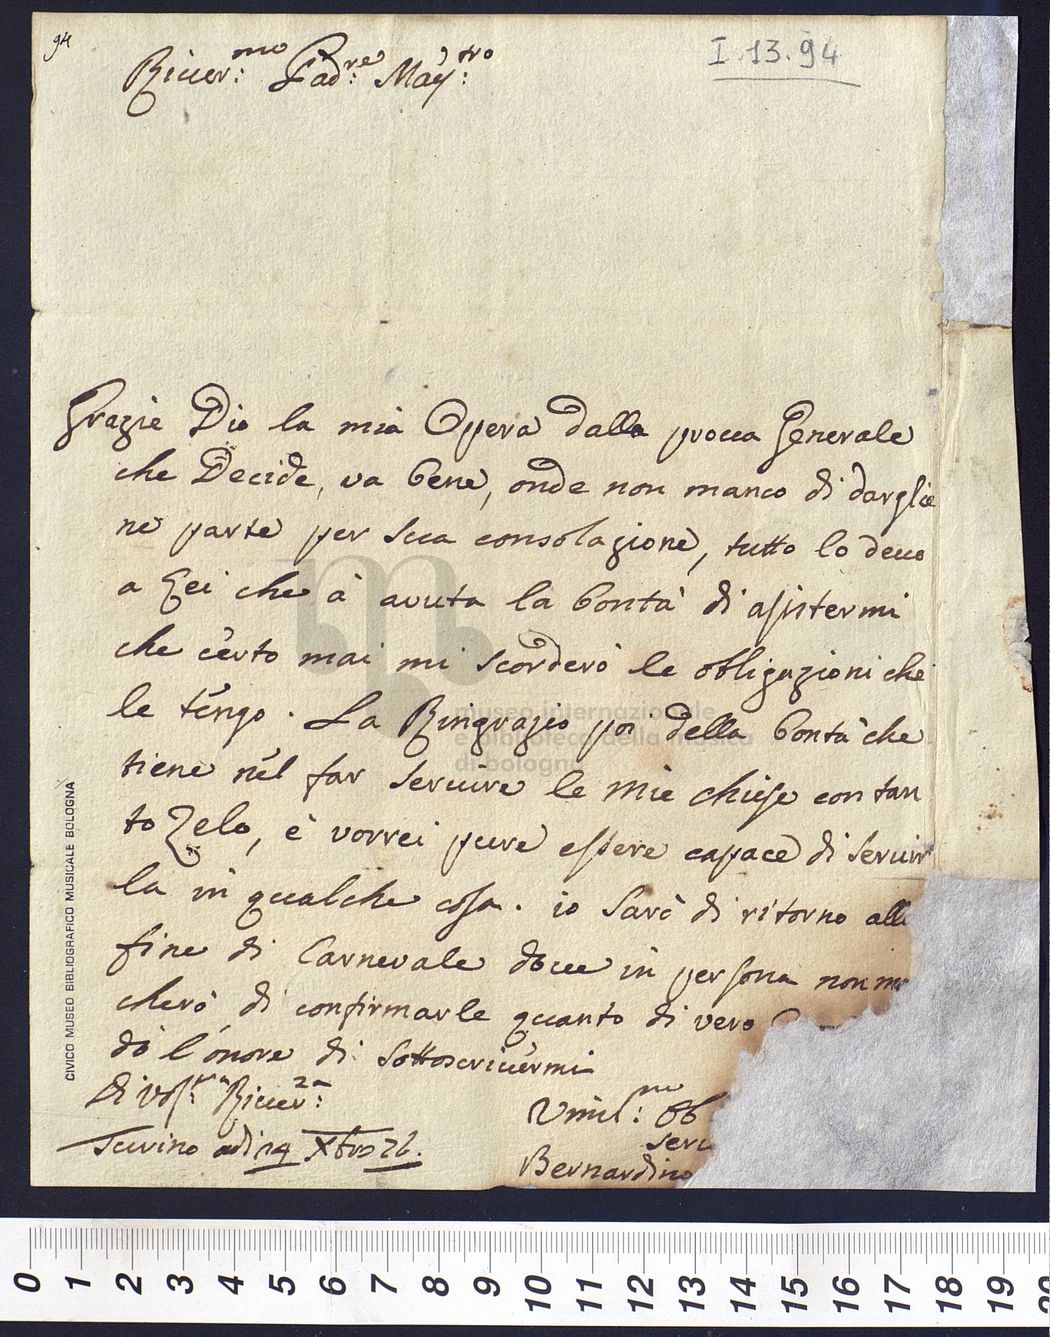 94
I.13.94
River:mo Pad:re Maỹ:tro
Grazie Dio la mia Opera dalla vocca Generale
che Decide, va bene, onde non manco di darglie
ne parte per sua consolazione, tutto lo devo
a Lei che à avuta la bontà di assistermi
che certo mai mi scorderò le obligazioni che
le tengo. La Ringrazio poi della bontà che
tiene nel far servire le mie chiese con tan
to Zelo, e vorrei pure essere capace di servir
la in qualche cosa. io sarò di ritorno alla
fine di Carnevale dove in persona non m
cherò di confirmarle quanto di vero
dò l'onore di sottoscrivermi
Di Vos:ra River:za
Turino adi 14 Xbro 26.
Umil:mo Ob
serv
Bernardino
CIVICO MUSEO BIBLIOGRAFICO MUSICALE BOLOGNA
museo internazionale
e biblioteca della musica
di bologna
0 1 2 3 4 5 6 7 8 9 10 11 12 13 14 15 16 17 18 19